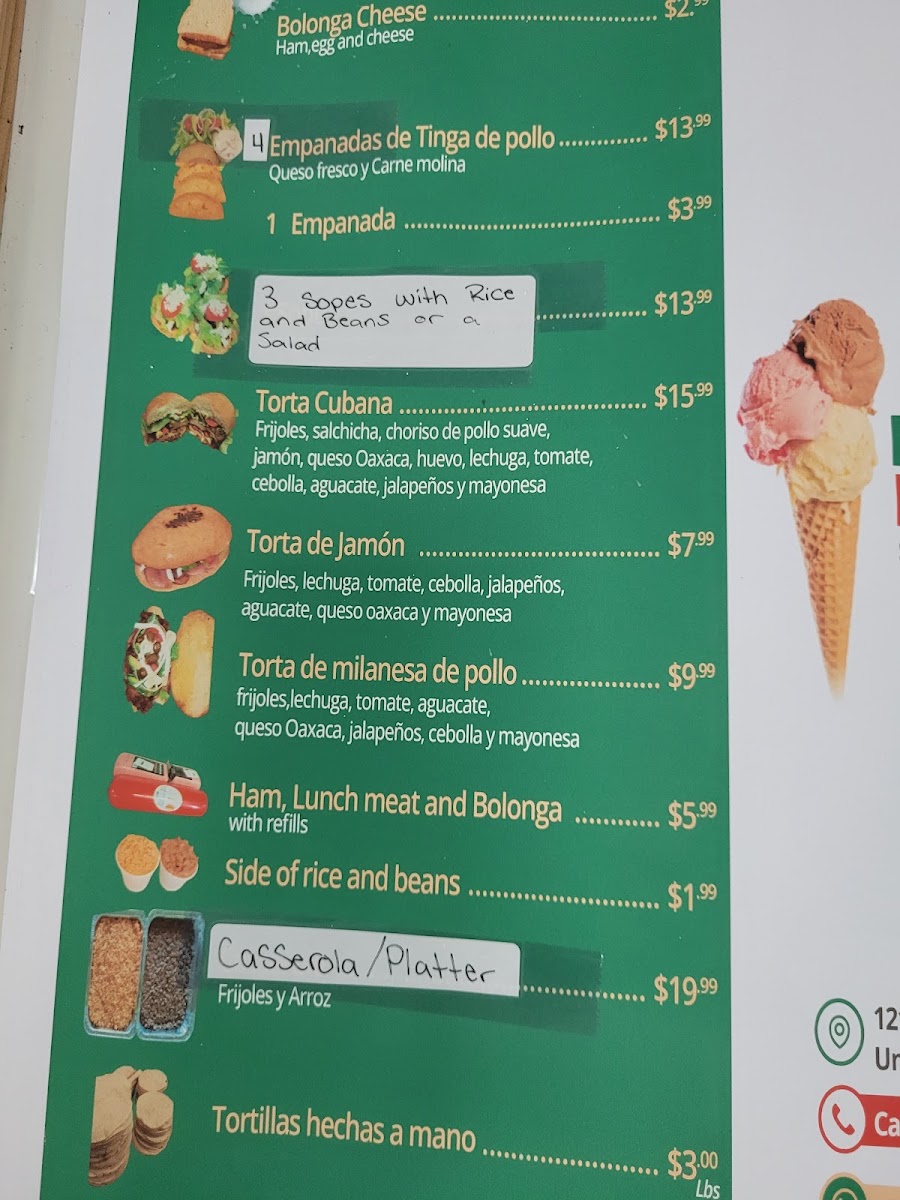 Bolonga Cheese ........ $2.99
Ham,egg and cheese
4 Empanadas de Tinga de pollo ........ $13.99
Queso fresco y Carne molina
1 Empanada ........ $3.99
3 Sopes with Rice
and Beans or a ........ $13.99
Salad
Torta Cubana ........ $15.99
Frijoles, salchicha, choriso de pollo suave,
jamón, queso Oaxaca, huevo, lechuga, tomate,
cebolla, aguacate, jalapeños y mayonesa
Torta de Jamón ........ $7.99
Frijoles, lechuga, tomate, cebolla, jalapeños,
aguacate, queso oaxaca y mayonesa
Torta de milanesa de pollo ........ $9.99
frijoles,lechuga, tomate, aguacate,
queso Oaxaca, jalapeños, cebolla y mayonesa
Ham, Lunch meat and Bolonga ........ $5.99
with refills
Side of rice and beans ........ $1.99
Casserola/Platter ........ $19.99
Frijoles y Arroz
Tortillas hechas a mano ........ $3.00
Lbs
12
Un
Ca